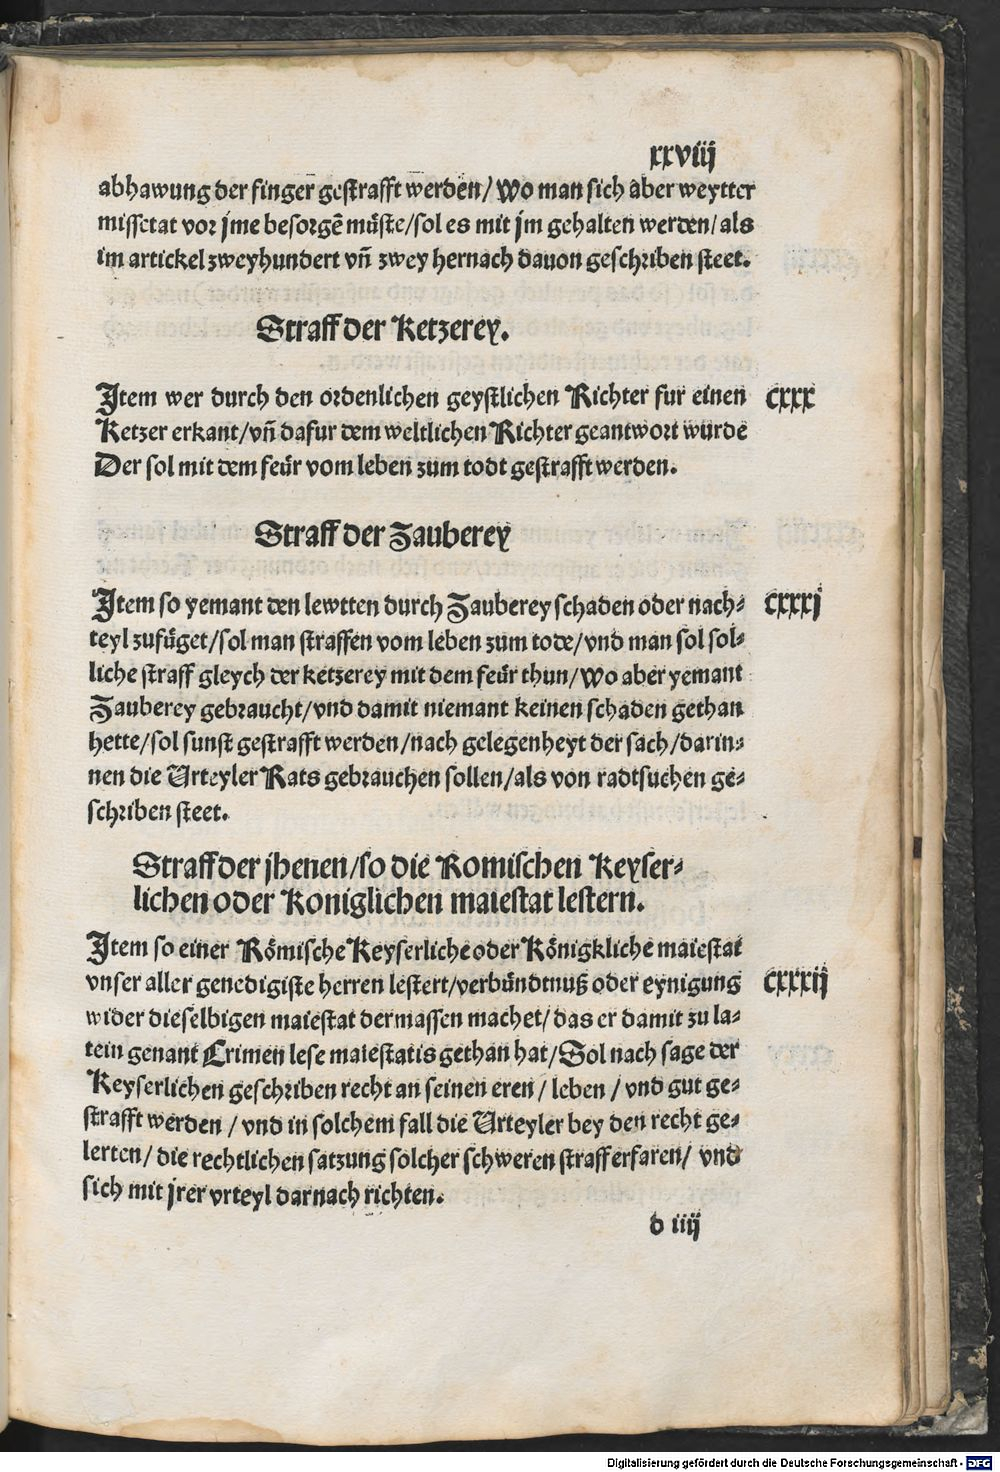 xxviij
abhawung der finger gestrafft werden/ Wo man sich aber weytter
missetat vor jme besorgē müste/ sol es mit jm gehalten werden/ als
im artickel zweyhundert vñ zwey hernach dauon geschriben steet.
Straff der Ketzerey.
Item wer durch den ordenlichen geystlichen Richter fur einen cxxx
Ketzer erkant/ vñ dafur dem weltlichen Richter geantwort wurde
Der sol mit dem feür vom leben zum todt gestrafft werden.
Straff der Zauberey
Item so yemant den lewtten durch Zauberey schaden oder nach- cxxxj
teyl zufüget/ sol man straffen vom leben zum tode/ vnd man sol sol-
liche straff gleych der ketzerey mit dem feür thun/ Wo aber yemant
Zauberey gebraucht/ vnd damit niemant keinen schaden gethan
hette/ sol sunst gestrafft werden/ nach gelegenheyt der sach/ darin-
nen die Urteyler Rats gebrauchen sollen/ als von radtsuchen ge-
schriben steet.
Straff der jhenen/ so die Romischen Keyser-
lichen oder Koniglichen maiestat lestern.
Item so einer Römische Keyserliche oder Königkliche maiestat
vnser aller genedigiste herren lestert/ verbündtnuß oder eynigung cxxxij
wider dieselbigen maiestat dermassen machet/ das er damit zu la-
tein genant Crimen lese maiestatis gethan hat/ Sol nach sage der
Keyserlichen geschriben recht an seinen eren/ leben/ vnd gut ge-
strafft werden/ vnd in solchem fall die Urteyler bey den recht ge-
lerten/ die rechtlichen satzung solcher schweren straff erfaren/ vnd
sich mit jrer vrteyl darnach richten.
d iiij
Digitalisierung gefördert durch die Deutsche Forschungsgemeinschaft - DFG